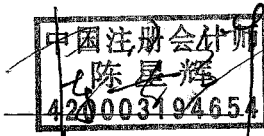 中国注册会计师
陈星辉
420003194654